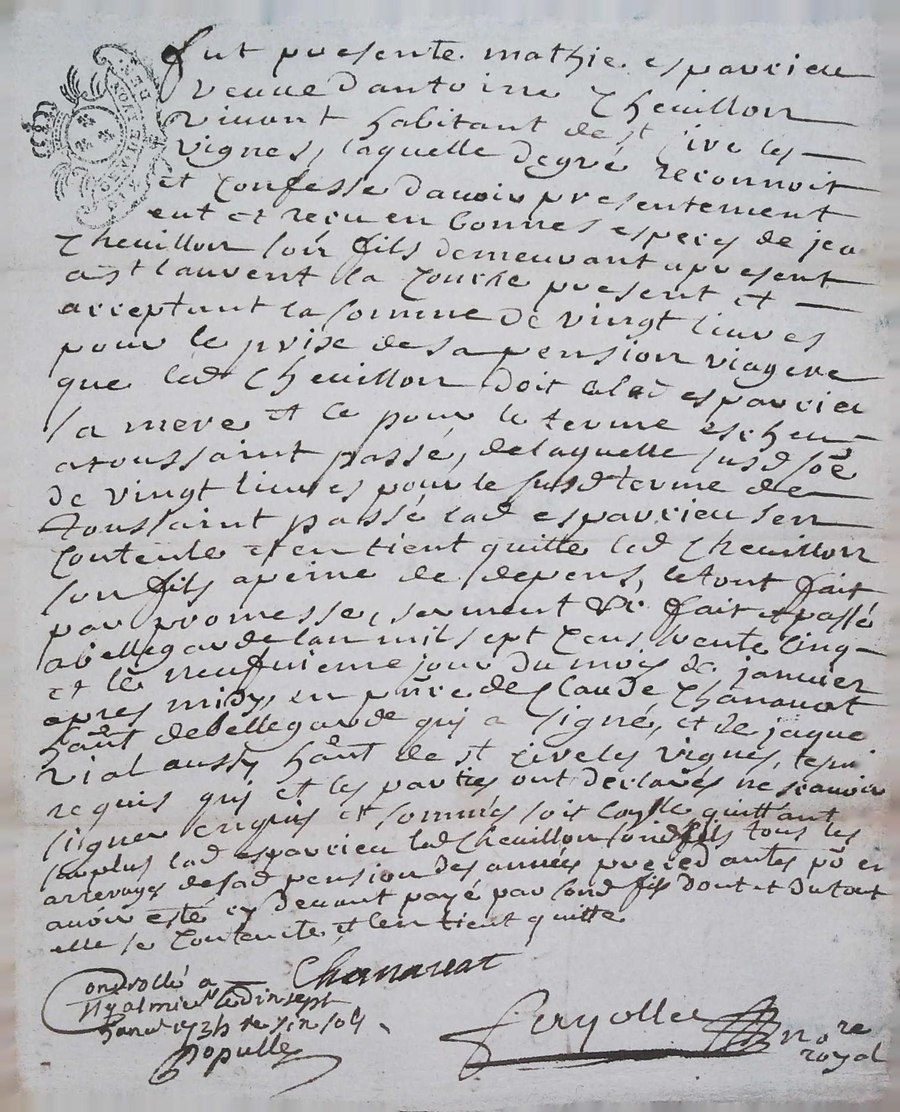 fut presente mathie esparcieu
veuve dantoine Cheuillon
vivant habitant de st Cire les
vignes, laquelle degré reconnoit
et Confesse davoir presentement
eut et reçu en bonnes especes de jea
Cheuillon son fils demeurant apresent
a st laurent la Conche present et
acceptant la somme de vingt livres
pour le prise de sa pension viagere
que led Cheuillon doit alad esparcieu
sa mere et ce pour le terme escheu
atoussaint passé, delaquelle susd sôe
de vingt livres pour le susd terme de
toussaint passé lad esparcieu sen
Contente et en tient quitte led Cheuillon
son fils apeine de depens, le tout fait
par promesse, serment &c. fait et passé
abellegarde lan mil sept Cens trente Cinq
et le neufvieme jour du mois de janvier
apres midy, en pñce de Claude Chanavat
hañt debellegarde qui a signé, et de jaque
vial aussy hañt de st Cire les vignes, tesm
requis qui et les parties ont declarés ne scavoir
signer enquis et sommés soit Coylle quittant
en plus lad esparcieu led Cheuillon sond fils tous les
arrerages desad pension des années precedantes pō en
avoir esté cy devant payé par sond fils dont et du tout
elle se Contente et len tient quitte
Chanavat
Controllé a
st galmier le dixsept
janv 1735
Populle
Feryolle nore
royal